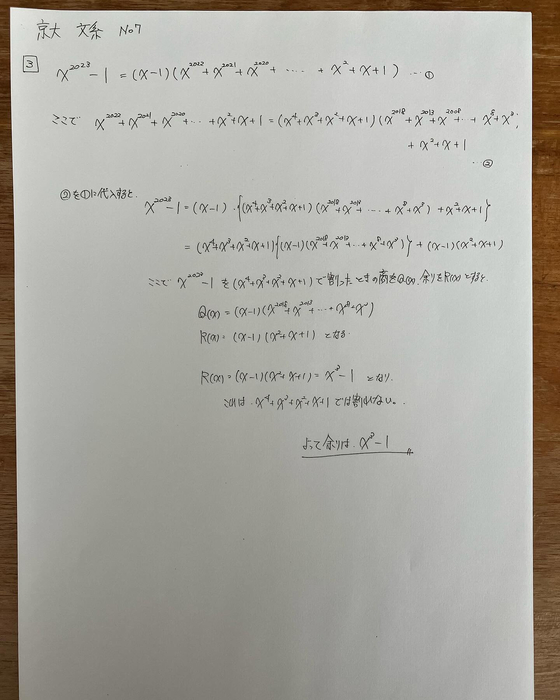 京大 文系 No7
3
x^2023 - 1 = (x-1)(x^2022 + x^2021 + x^2020 + ‥‥ + x^2 + x + 1) ‥①
ここで x^2022 + x^2021 + x^2020 + ‥ + x^2 + x + 1 = (x^4 + x^3 + x^2 + x + 1)(x^2018 + x^2013 + x^2008 + ‥ + x^8 + x^3)
+ x^2 + x + 1
‥②
②を①に代入すると、
x^2023 - 1 = (x-1)・{(x^4 + x^3 + x^2 + x + 1)(x^2018 + x^2013 + ‥‥ + x^8 + x^3) + x^2 + x + 1}
= (x^4 + x^3 + x^2 + x + 1){(x-1)(x^2018 + x^2013 + ‥ + x^8 + x^3)} + (x-1)(x^2 + x + 1)
ここで x^2023 - 1 を (x^4 + x^3 + x^2 + x + 1) で割ったときの商をQ(x), 余りをR(x)とすると、
Q(x) = (x-1)(x^2018 + x^2013 + ‥ + x^8 + x^3)
R(x) = (x-1)(x^2 + x + 1) となる
R(x) = (x-1)(x^2 + x + 1) = x^3 - 1 となり、
これは x^4 + x^3 + x^2 + x + 1 では割れない。
よって余りは x^3 - 1